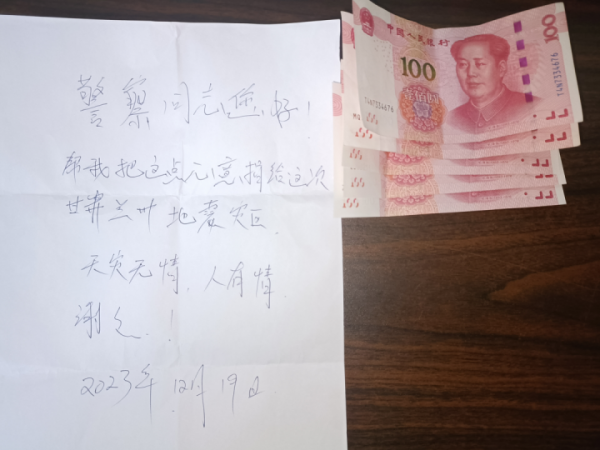 警察同志您好！
帮我把这点心意捐给这次
甘肃兰州地震灾区.
天灾无情.人有情.
谢之.！
2023年12月19日
中国人民银行
100
100
TG47334676
TG47334676